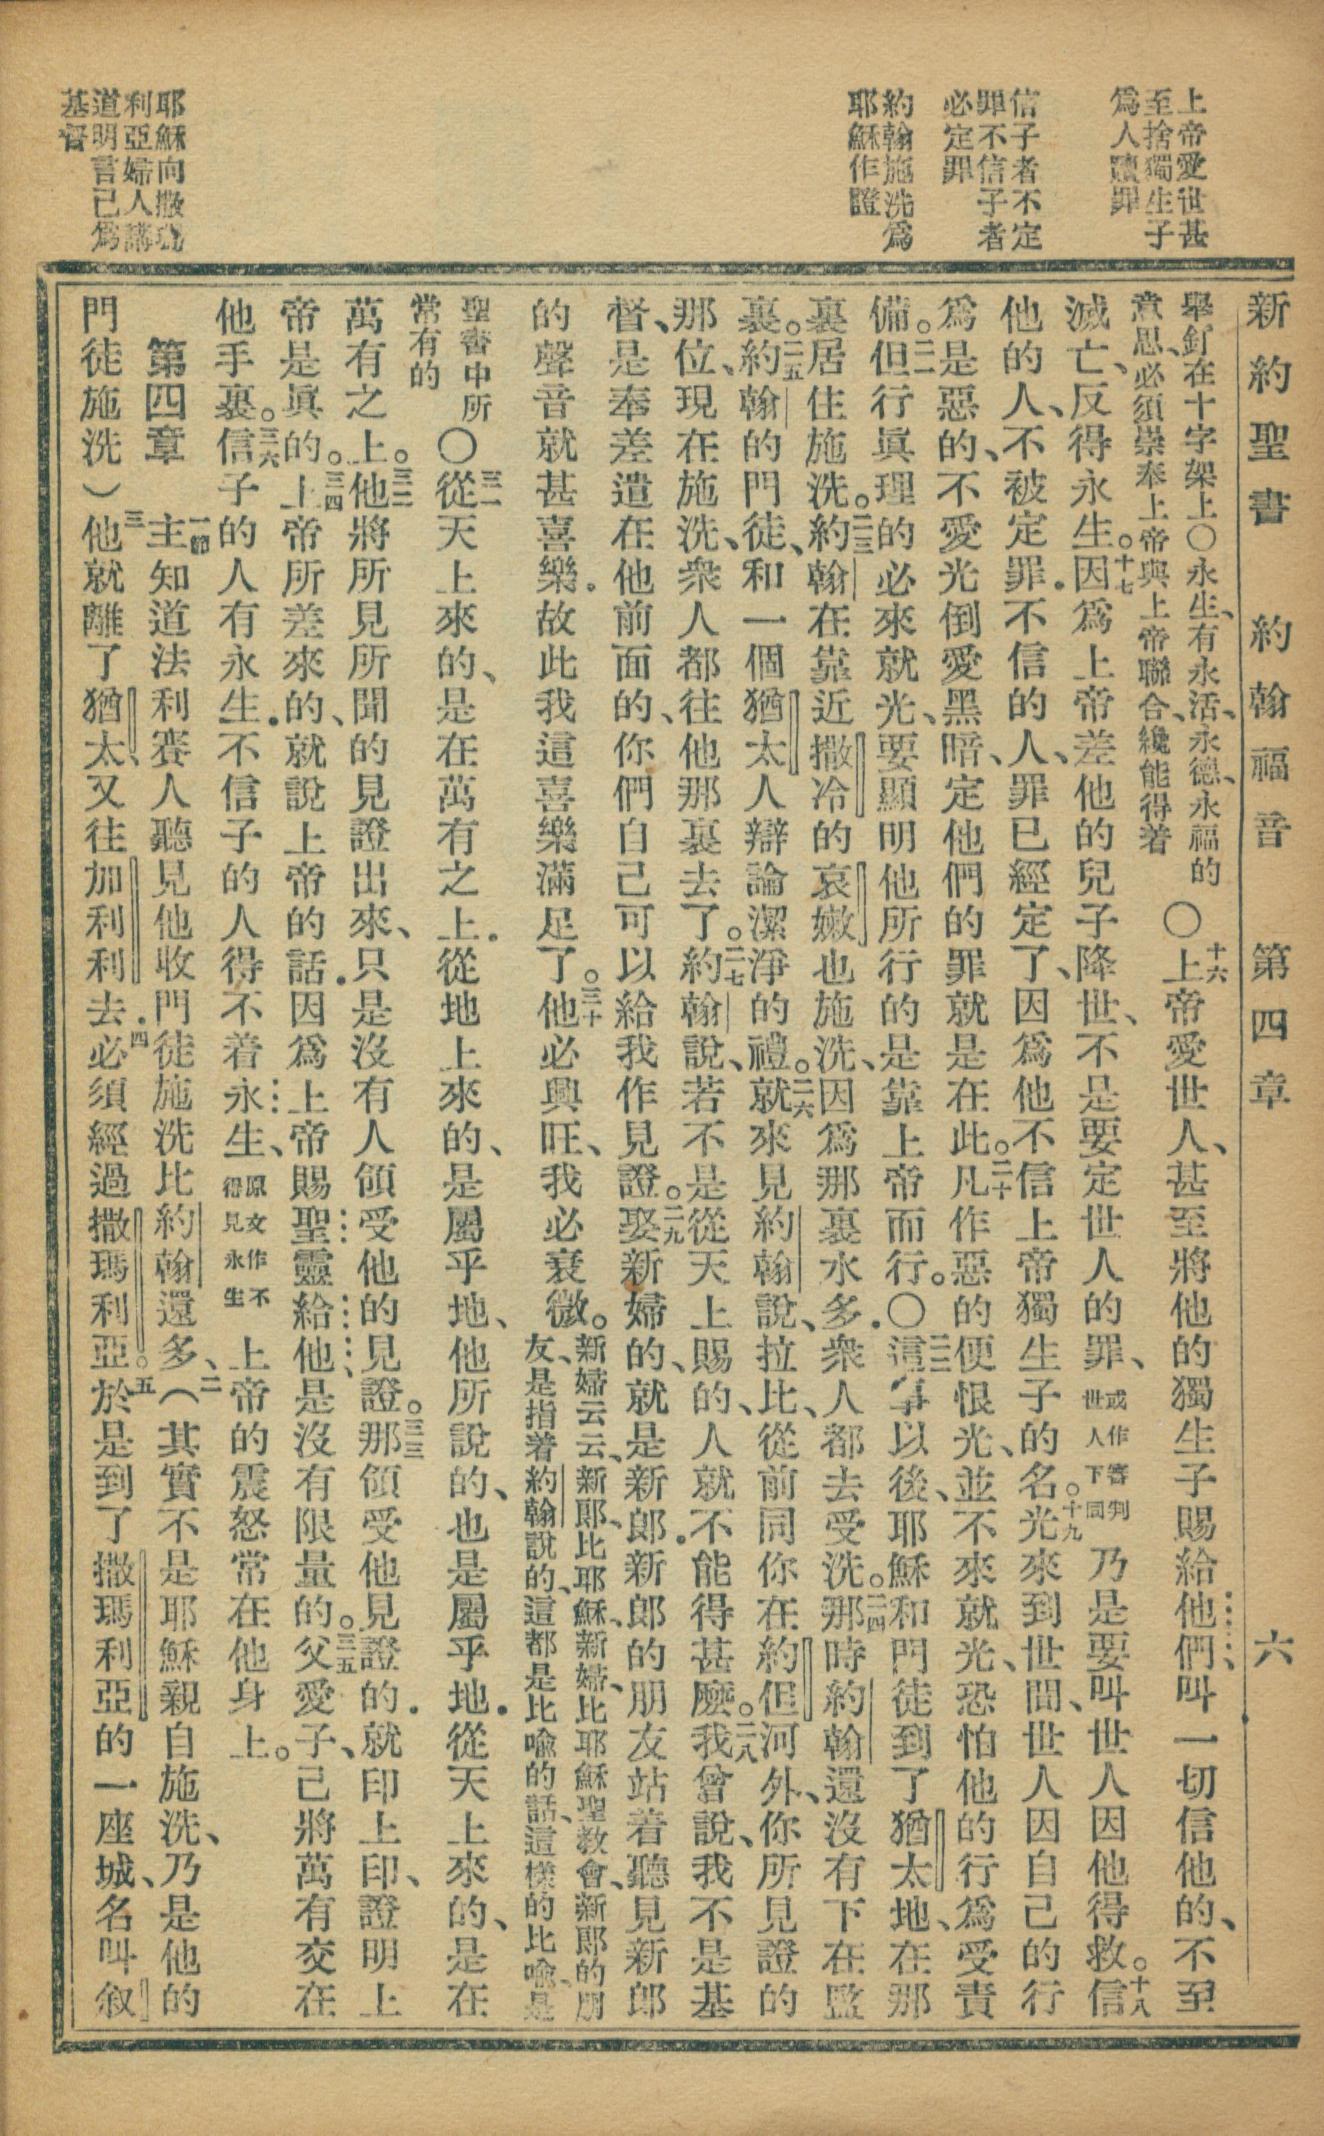 上帝愛世甚
至捨獨生子
爲人贖罪
信子者不定
罪不信子者
必定罪
約翰施洗爲
耶穌作證
耶穌向撒瑪
利亞婦人講
道明言己爲
基督
新約聖書 約翰福音 第四章 六
舉釘在十字架上〇永生、有永活、永德、永福的
意思、必須崇奉上帝與上帝聯合、纔能得着
〇十六上帝愛世人、甚至將他的獨生子賜給他們、叫一切信他的、不至
滅亡、反得永生。十七因爲上帝差他的兒子降世、不是要定世人的罪、或作審判世人下同乃是要叫世人因他得救。十八信
他的人、不被定罪．不信的人、罪已經定了、因爲他不信上帝獨生子的名。十九光來到世間、世人因自己的行
爲是惡的、不愛光倒愛黑暗、定他們的罪就是在此。二十凡作惡的便恨光、並不來就光、恐怕他的行爲受責
備。二一但行眞理的必來就光、要顯明他所行的是靠上帝而行。〇二二這事以後、耶穌和門徒到了猶太地、在那
裏居住施洗。二三約翰在靠近撒冷的哀嫩也施洗、因爲那裏水多．衆人都去受洗。二四那時約翰還沒有下在監
裏。二五約翰的門徒、和一個猶太人辯論潔淨的禮。二六就來見約翰說、拉比、從前同你在約但河外、你所見證的
那位、現在施洗、衆人都往他那裏去了。二七約翰說、若不是從天上賜的、人就不能得甚麽。二八我曾說、我不是基
督、是奉差遣在他前面的、你們自己可以給我作見證。二九娶新婦的、就是新郎．新郎的朋友站着聽見新郎
的聲音就甚喜樂．故此我這喜樂滿足了。三十他必興旺、我必衰微。新婦云云、新郎、比耶穌、新婦、比耶穌聖教會、新郎的朋
友、是指着約翰說的、這都是比喻的話、這樣的比喻、是
聖書中所
常有的
〇三一從天上來的、是在萬有之上．從地上來的、是屬乎地、他所說的、也是屬乎地．從天上來的、是在
萬有之上。三二他將所見所聞的見證出來、只是沒有人領受他的見證。三三那領受他見證的．就印上印、證明上
帝是眞的。三四上帝所差來的、就說上帝的話．因爲上帝賜聖靈給他、是沒有限量的。三五父愛子、已將萬有交在
他手裏。三六信子的人有永生．不信子的人得不着永生、原文作不得見永生上帝的震怒常在他身上。
第四章 一節主知道法利賽人聽見他收門徒施洗比約翰還多、二（其實不是耶穌親自施洗、乃是他的
門徒施洗）三他就離了猶太、又往加利利去．四必須經過撒瑪利亞。五於是到了撒瑪利亞的一座城、名叫敘